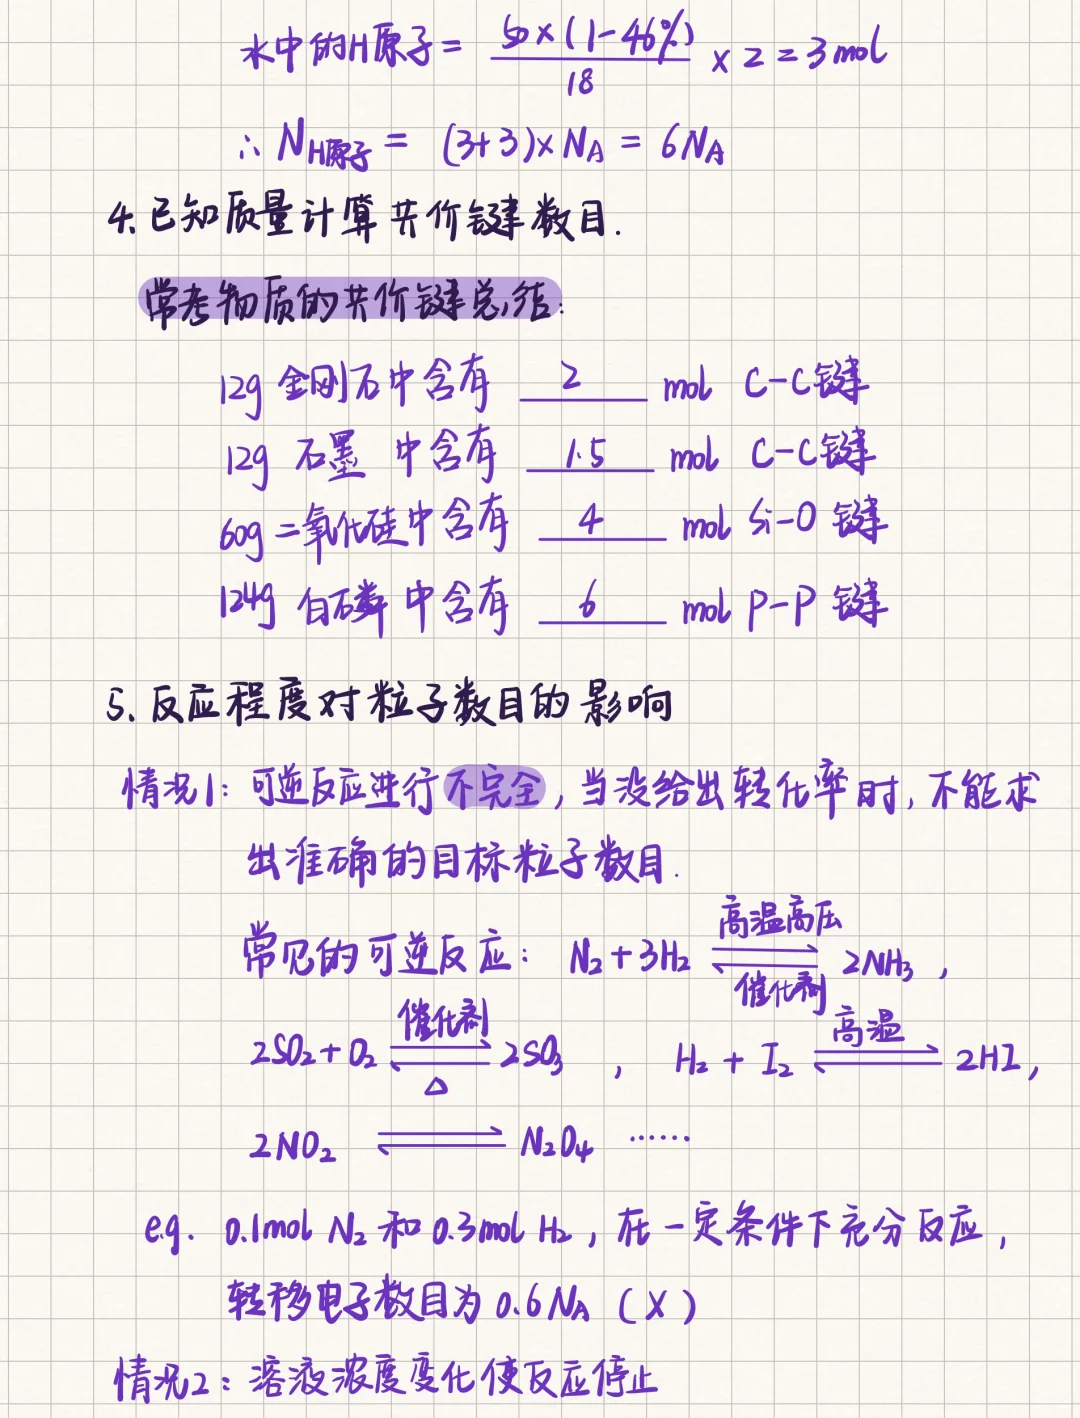 水中的H原子 = 50×(1-46%)/18 × 2 = 3mol
∴ N_H原子 = (3+3)×N_A = 6N_A
4.已知质量计算共价键数目.
常考物质的共价键总结:
12g 金刚石中含有 2 mol C-C键
12g 石墨 中含有 1.5 mol C-C键
60g 二氧化硅中含有 4 mol Si-O 键
124g 白磷 中含有 6 mol P-P 键
5.反应程度对粒子数目的影响
情况1: 可逆反应进行不完全,当没给出转化率时,不能求
出准确的目标粒子数目.
常见的可逆反应: N₂+3H₂ ⇌ 高温高压 催化剂 2NH₃ ,
2SO₂+O₂ ⇌ 催化剂 △ 2SO₃ , H₂ + I₂ ⇌ 高温 2HI,
2NO₂ ⇌ N₂O₄ ……
e.g. 0.1mol N₂ 和 0.3mol H₂ , 在一定条件下充分反应,
转移电子数目为 0.6N_A (X)
情况2: 溶液浓度变化使反应停止